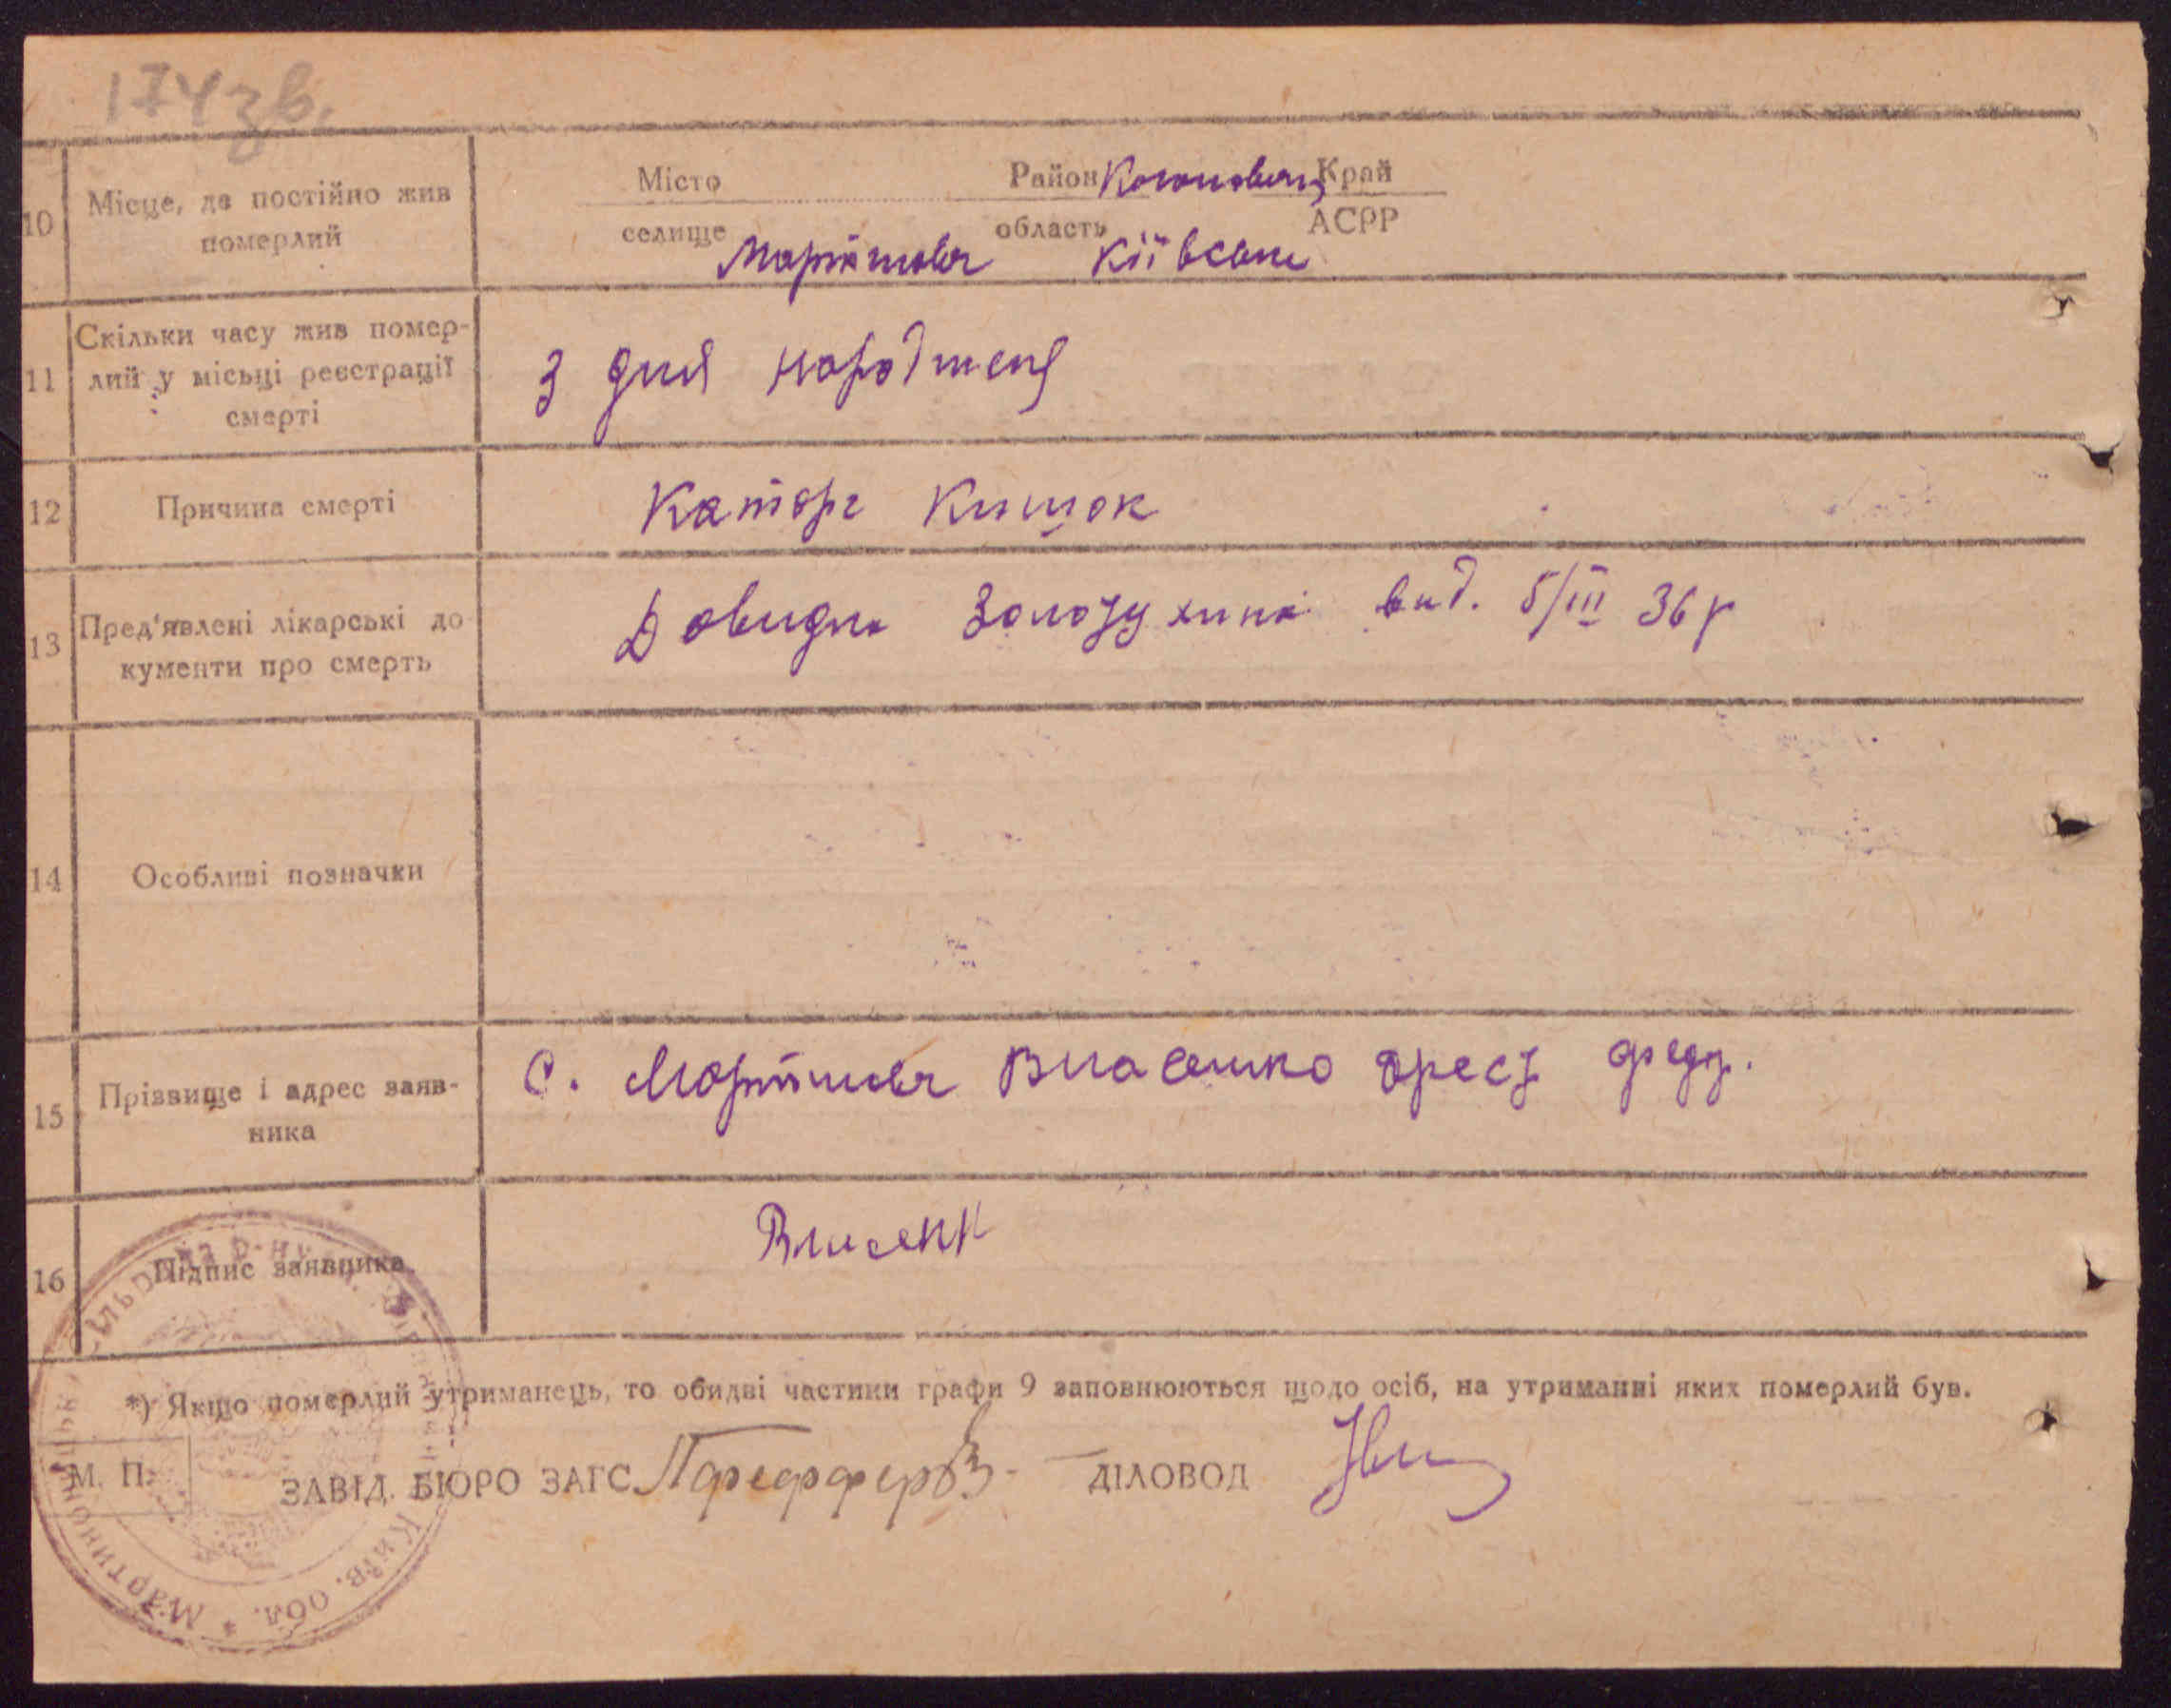 174зв.
10 Місце, де постійно жив померлий
Місто Район Край
селище область АСРР
Київськ
11 Скільки часу жив помер-
лий у місьці реєстрації
смерті
З дня народженя
12 Причина смерті
Катарг Кишок
13 Пред'явлені лікарські до
кументи про смерть
Довидка вид. 5/III 36 р
14 Особливі позначки
15 Прізвище і адрес заяв-
ника
С. Власенко
16 Підпис заявника
Власенк
*) Якщо померлий утриманець, то обидві частини графи 9 заповнюються щодо осіб, на утриманні яких померлий був.
М. П.
ЗАВІД. БЮРО ЗАГС ДІЛОВОД
Київ. обл. *